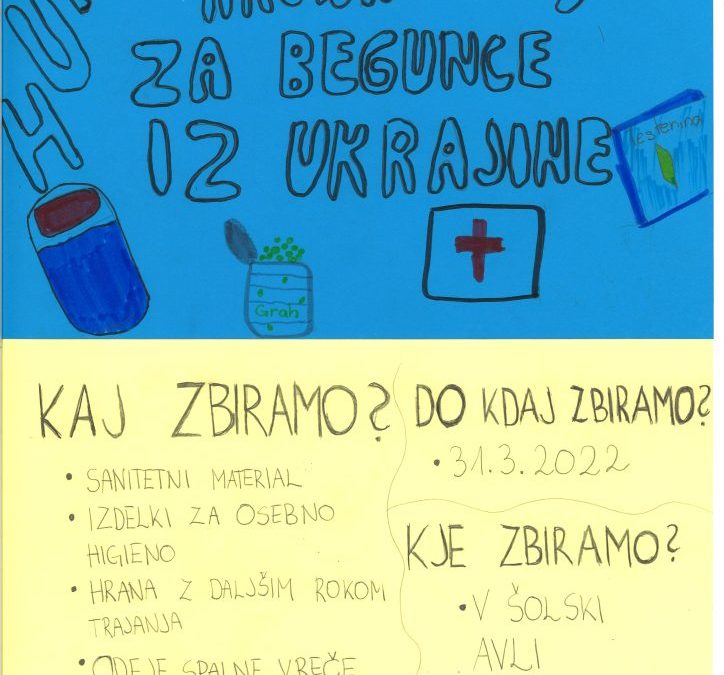 ZA BEGUNCE
IZ UKRAJINE
Grah
KAJ ZBIRAMO?
• SANITETNI MATERIAL
• IZDELKI ZA OSEBNO
HIGIENO
• HRANA Z DALJŠIM ROKOM
TRAJANJA
• ODEJE SPALNE VREČE
DO KDAJ ZBIRAMO?
• 31.3.2022
KJE ZBIRAMO?
• V ŠOLSKI
AVLI